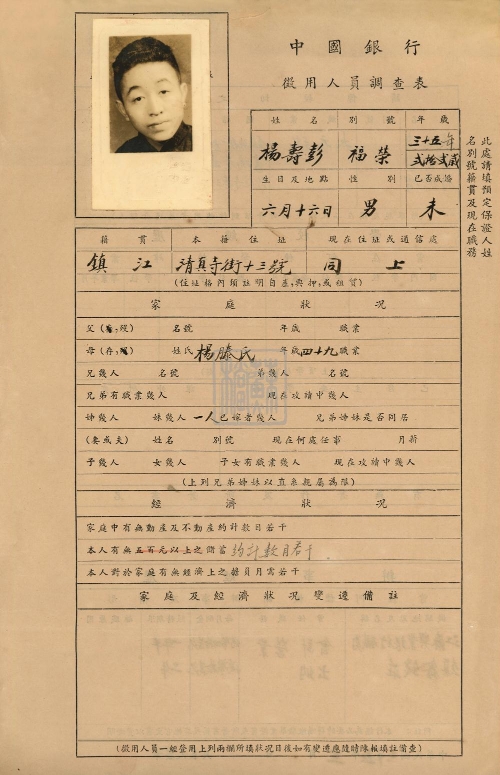 中國銀行
徵用人員調查表
姓名 別號 年歲
楊壽彭 福榮 三十五年 貳拾貳歲
生日及地點 性別 已否成婚
六月十六日 男 未
此處請填預定保證人姓
名別號籍貫及現在職務
籍貫 本籍住址 現在住址或通信處
鎮江 清真寺街十三號 同上
(住址格內須註明自產,典押,或租賃)
家庭狀況
父(存,歿) 名號 年歲 職業
母(存,歿) 姓氏 楊滕氏 年歲 四十九 職業
兄幾人 名號 弟幾人 名號
兄弟有職業幾人 現在攻讀中幾人
姊幾人 妹幾人 一人 已嫁者幾人 兄弟姊妹是否同居
(妻或夫) 姓名 別號 現在何處任事 月薪
子幾人 女幾人 子女有職業幾人 現在攻讀中幾人
(上列兄弟姊妹以直系親屬為限)
經濟狀況
家庭中有無動產及不動產約計數目若干
本人有無五百元以上之儲蓄 約計數目若干
本人對於家庭有無經濟上之擔負月需若干
家庭及經濟狀況變遷備註
(徵用人員一經登用上列兩欄所填狀況日後如有變遷應隨時陳報填註備查)